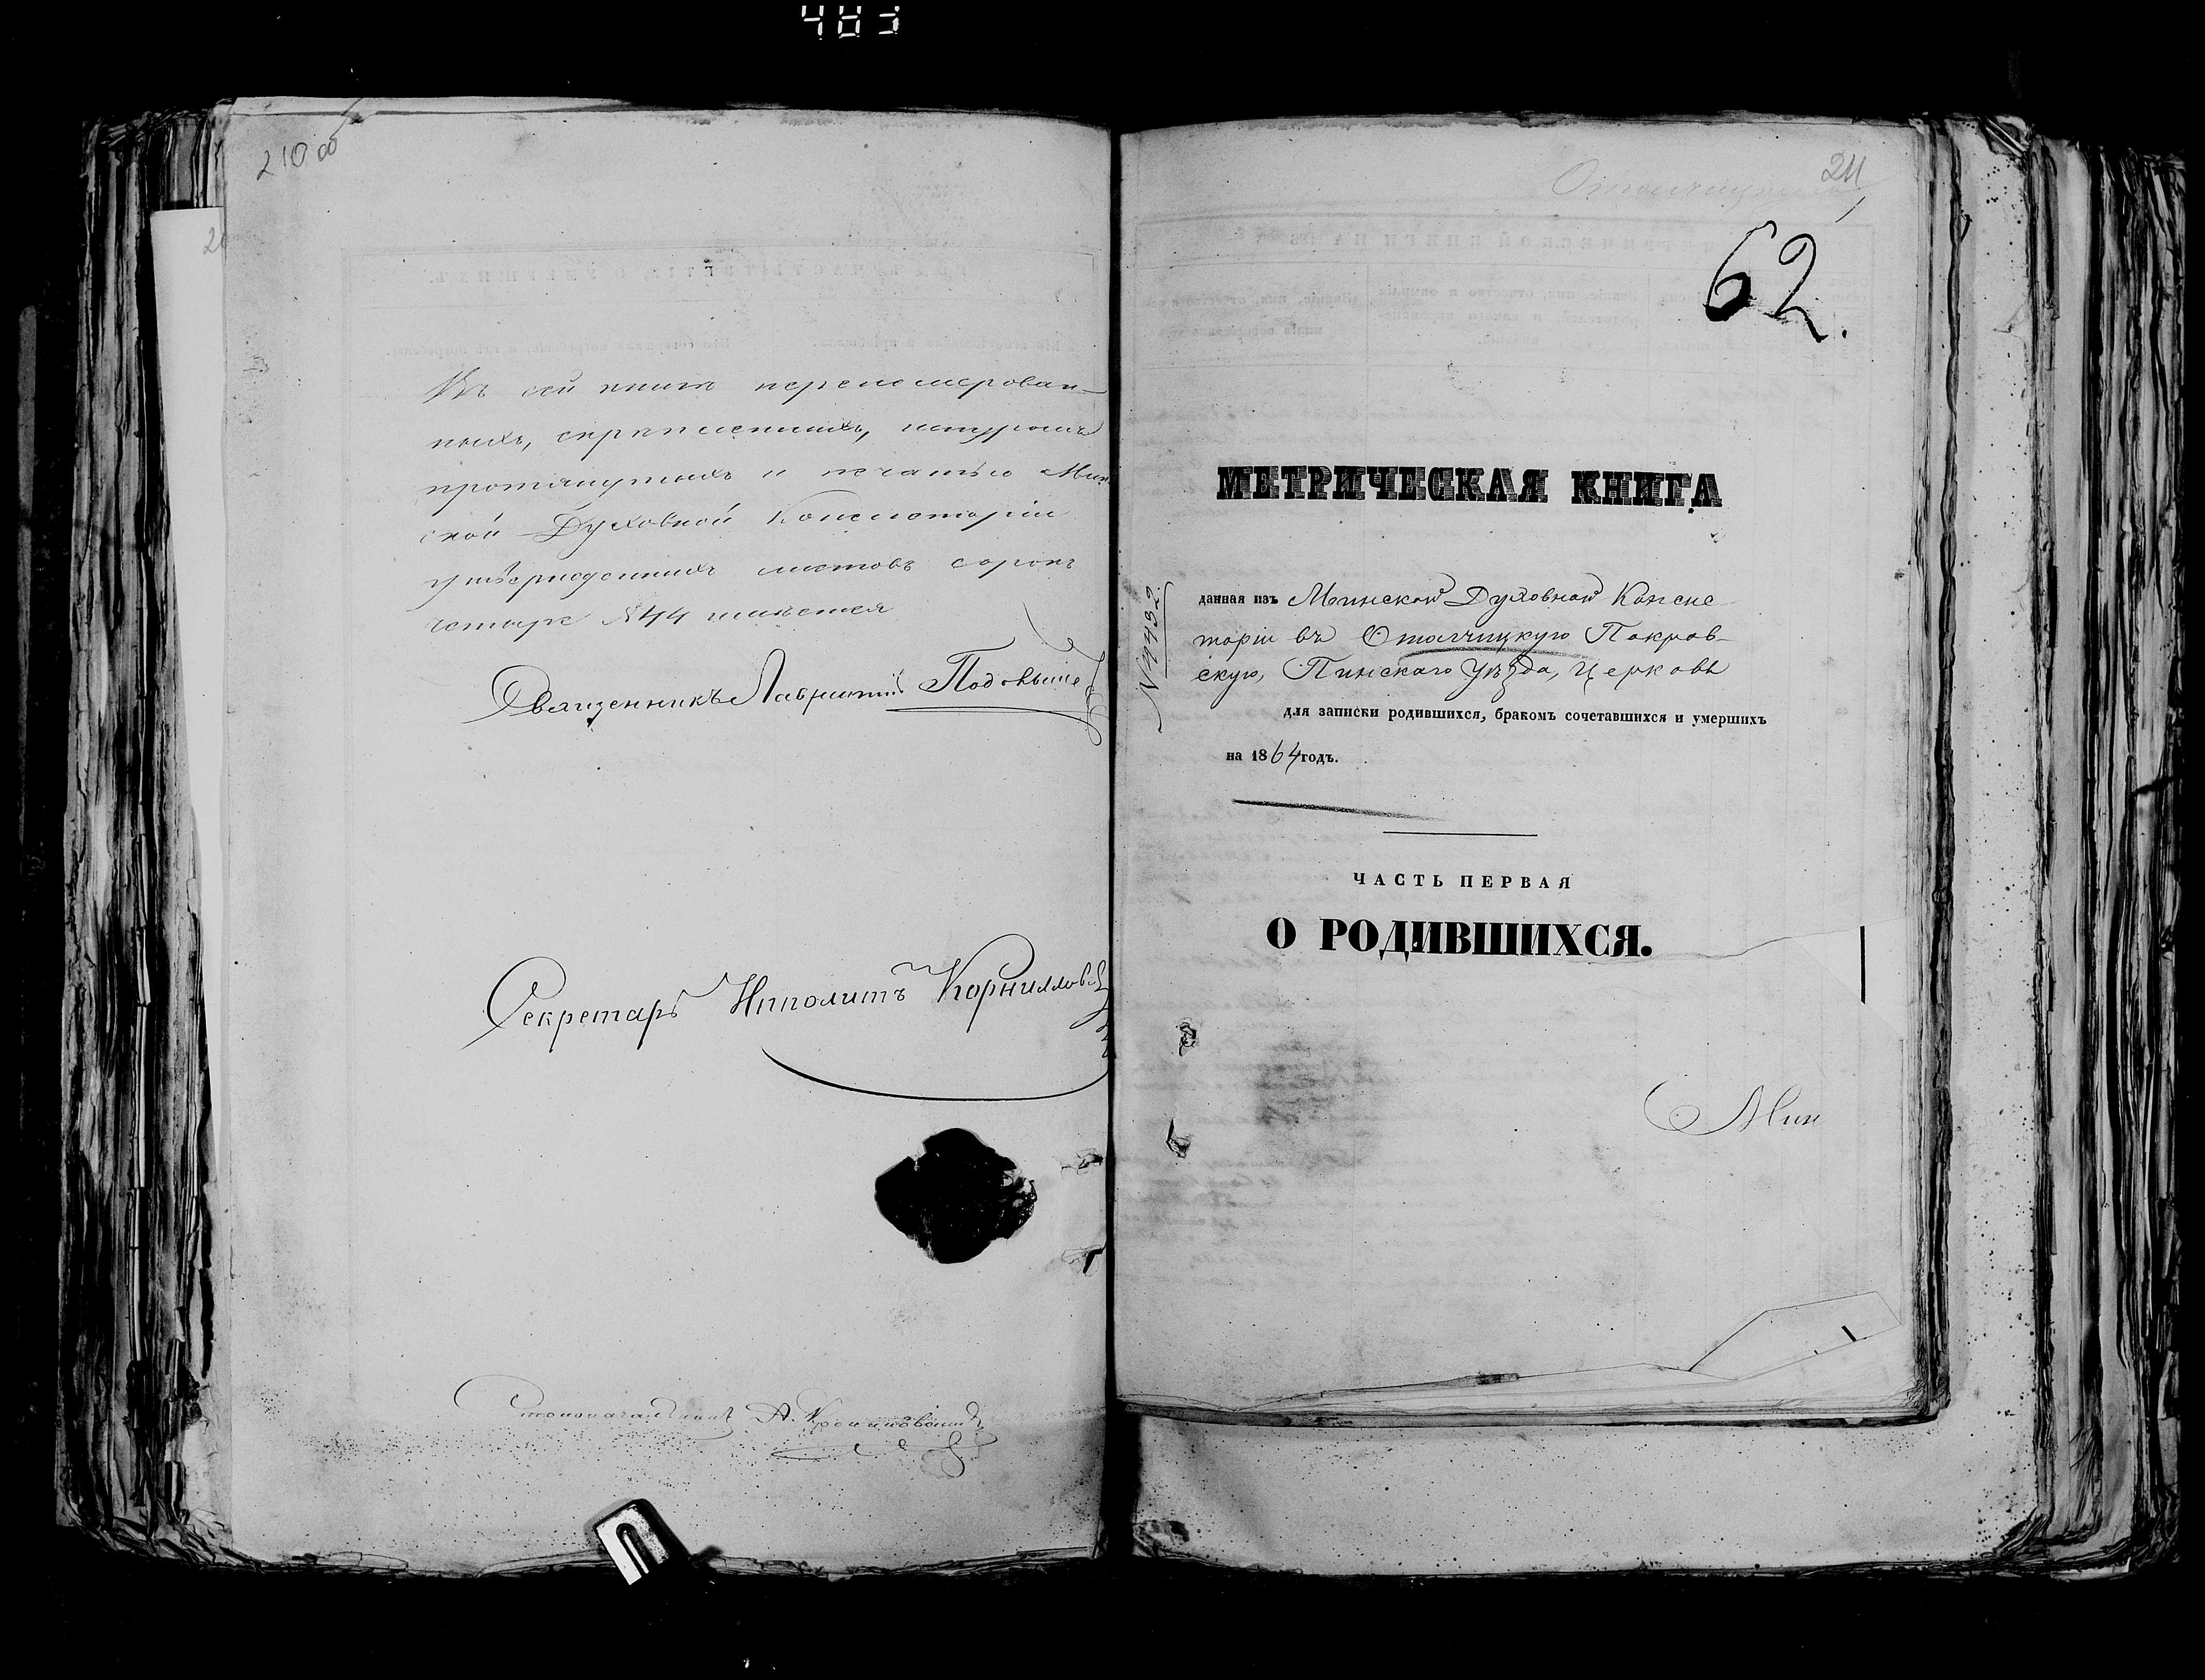 483
210 об
Въ сей книгѣ перенумерован-
ныхъ, скрѣпленныхъ, шнуромъ
протянутыхъ и печатью Мин
ской Духовной Консисторіи
утвержденныхъ листовъ сорокъ
четыре №44 имѣется
Священникъ Лаврентій
Секретарь Ипполитъ Корниллов
Столоначальникъ А.
211
62.
МЕТРИЧЕСКАЯ КНИГА
№4432.
данная изъ Минской Духовной Консис
торіи въ Отолчицкую Покров-
скую, Пинскаго Уѣзда, Церковь
для записки родившихся, бракомъ сочетавшихся и умершихъ
на 1864 годъ.
ЧАСТЬ ПЕРВАЯ
О РОДИВШИХСЯ.
Мин